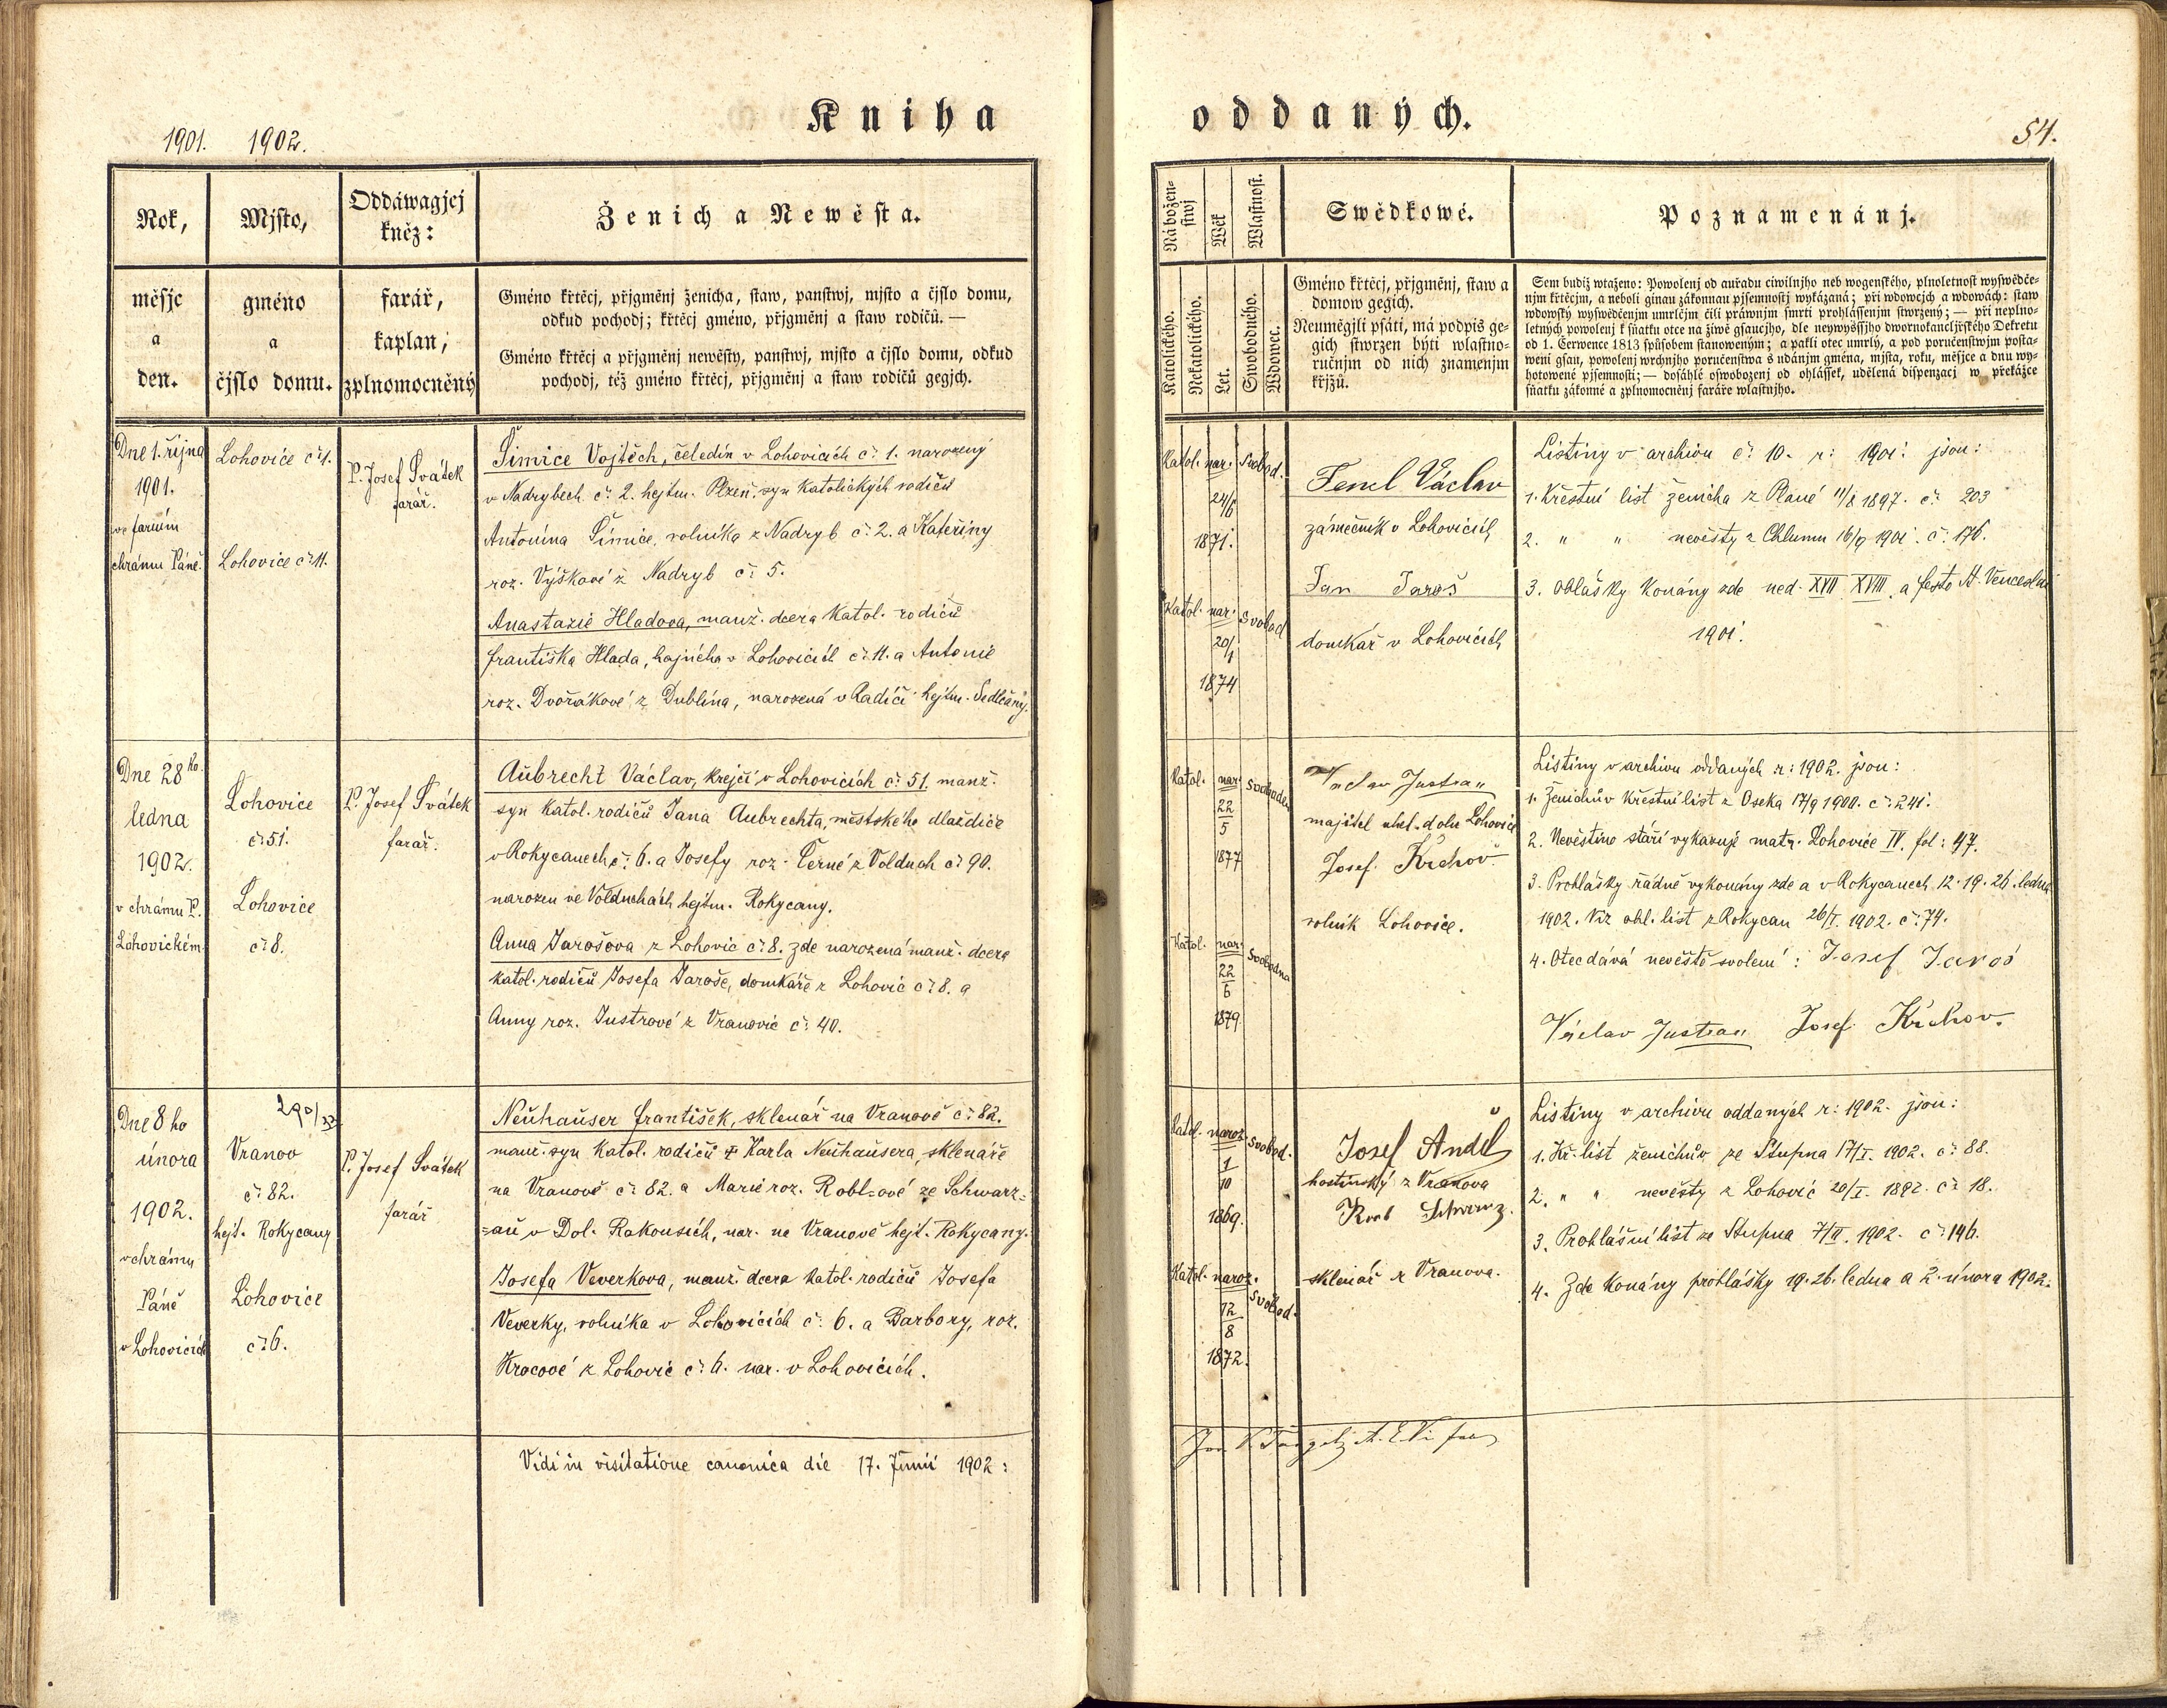 Kniha oddaných.
1901. 1902.
54.
Rok,
měsjc
a
den.
Mjsto,
gméno
a
čjslo domu.
Oddáwagjcj
kněz:
farář,
kaplan,
zplnomocněný
Ženich a Newěsta.
Gméno křtěcj, přjgměnj ženicha, staw, panstwj, mjsto a čjslo domu,
odkud pochodj; křtěcj gméno, přjgměnj a staw rodičů. —
Gméno křtěcj a přjgměnj newěsty, panstwj, mjsto a čjslo domu, odkud
pochodj, též gméno křtěcj, přjgměnj a staw rodičů gegjch.
Náboženstwj
Wěk
Wlastnost.
Katolického.
Nekatolického.
Let.
Swobodného.
Wdowec.
Swědkowé.
Gméno křtěcj, přjgměnj, staw a
domow gegich.
Neumějgli psáti, má podpis ge-
gich stwrzen býti wlastno-
ručnjm od nich znamenjm
křjžů.
Poznamenánj.
Sem budiž wtaženo: Powolenj od auřadu ciwilnjho neb wogenského, plnoletnost wyswědče-
njm křtěcjm, a neboli ginau zákonnau pjsemnostj wykázaná; při wdowcjch a wdowách: staw
wdowský wyswědčenjm umrlčjm čili práwnjm smrti prohlássenjm stwrzený; — při neplno-
letných powolenj k sňatku otce na žiwě gsaucjho, dle neywyššjho dwornokancljřského Dekretu
od 1. Čerwence 1813 spůsobem stanoweným; a pakli otec umrlý, a pod poručenstwjm posta-
weni gsau, powolenj wrchnjho poručenstwa s udánjm gména, mjsta, roku, měsjce a dnu wy-
hotowené pjsemnosti; — dosáhlé oswobozenj od ohlássek, udělená dispensacj w překážce
sňatku zákonné a zplnomocněnj faráře wlastnjho.
Dne 1. října
1901.
ve farním
chrámu Páně.
Lohovice č: 1.
Lohovice č: 11.
P. Josef Svátek
farář.
Šimice Vojtěch, čeledín v Lohovicích č: 1. narozený
v Nadrybech č: 2. hejtm. Plzeň. syn katolických rodičů
Antonína Šimice, rolníka z Nadryb č: 2. a Kateřiny
roz. Výškové z Nadryb č: 5.
Anastazie Hladova, manž. dcera katol. rodičů
Františka Hlada, hajného v Lohovicích č: 11. a Antonie
roz. Dvořákové z Dublína, narozená v Radíči hejtm. Sedlčany.
Katol. nar. Svobod.
24/6
1871.
Katol. nar. Svobod
20/1
1874
Fencl Václav
zámečník v Lohovicích
Jan Jaroš
domkář v Lohovicích
Listiny v archivu č: 10. r: 1901: jsou:
1. Křestní list ženicha z Plané 11/8 1897. č: 203
2. " " nevěsty z Chlumu 16/9 1901. č: 176.
3. Ohlášky konány zde ned. XVII XVIII. a festo St. Venceslai
1901.
Dne 28ho.
ledna
1902.
v chrámu P.
Lohovickém.
Lohovice
č: 51.
Lohovice
č: 8.
P. Josef Svátek
farář.
Aubrecht Václav, krejčí v Lohovicích č: 51. manž.
syn katol. rodičů Jana Aubrechta, městského dlaždiče
v Rokycanech č: 6. a Josefy roz. Černé z Volduch č: 90.
narozen ve Volduchách hejtm. Rokycany.
Anna Jarošova z Lohovic č: 8. zde narozená manž. dcera
katol. rodičů Josefa Jaroše, domkáře z Lohovic č: 8. a
Anny roz. Justrové z Vranovic č: 40.
Katol. nar. Svoboden
22
5
1877
Katol. nar. Svobodna
22
6
1879.
Václav Justian
majitel uhel. dolu Lohovice
Josef Krchov
rolník Lohovice.
Listiny v archivu oddaných r: 1902. jsou:
1. Ženichův křestní list z Oseka 17/9 1900. č: 241.
2. Nevěstino stáří vykazuje matr. Lohovice IV. fol: 47.
3. Prohlášky řádně vykonány zde a v Rokycanech 12. 19. 26. ledna
1902. Viz ohl. list z Rokycan 26/I. 1902. č: 74.
4. Otec dává nevěstě svolení: Josef Jaroš
Václav Justian Josef Krchov.
Dne 8 ho
února
1902.
v chrámu
Páně
v Lohovicích
290/37
Vranov
č: 82.
hejt. Rokycany
Lohovice
č: 6.
P. Josef Svátek
farář
Neuhauser František, sklenář na Vranově č: 82.
manž. syn katol. rodičů † Karla Neuhausera, sklenáře
na Vranově č: 82. a Marie roz. Roblové ze Schwarz=
=au v Dol. Rakousích, nar. na Vranově hejt. Rokycany.
Josefa Veverkova, manž. dcera katol. rodičů Josefa
Veverky, rolníka v Lohovicích č: 6. a Barbory, roz.
Krocové z Lohovic č: 6. nar. v Lohovicích.
Katol. naroz. Svobod.
1
10
1869.
Katol. naroz. Svobod.
12
8
1872.
Josef Anděl
hostinský z Vranova
Schwarz
sklenář z Vranova.
Listiny v archivu oddaných r: 1902. jsou:
1. Kř. list ženichův ze Stupna 17/I. 1902. č: 88.
2. " " nevěsty z Lohovic 20/I. 1892. č: 18.
3. Prohlášní list ze Stupna 7/II. 1902. č: 146.
4. Zde konány prohlášky 19. 26. ledna a 2. února 1902.
Vidi in visitatione canonica die 17. Junii 1902: